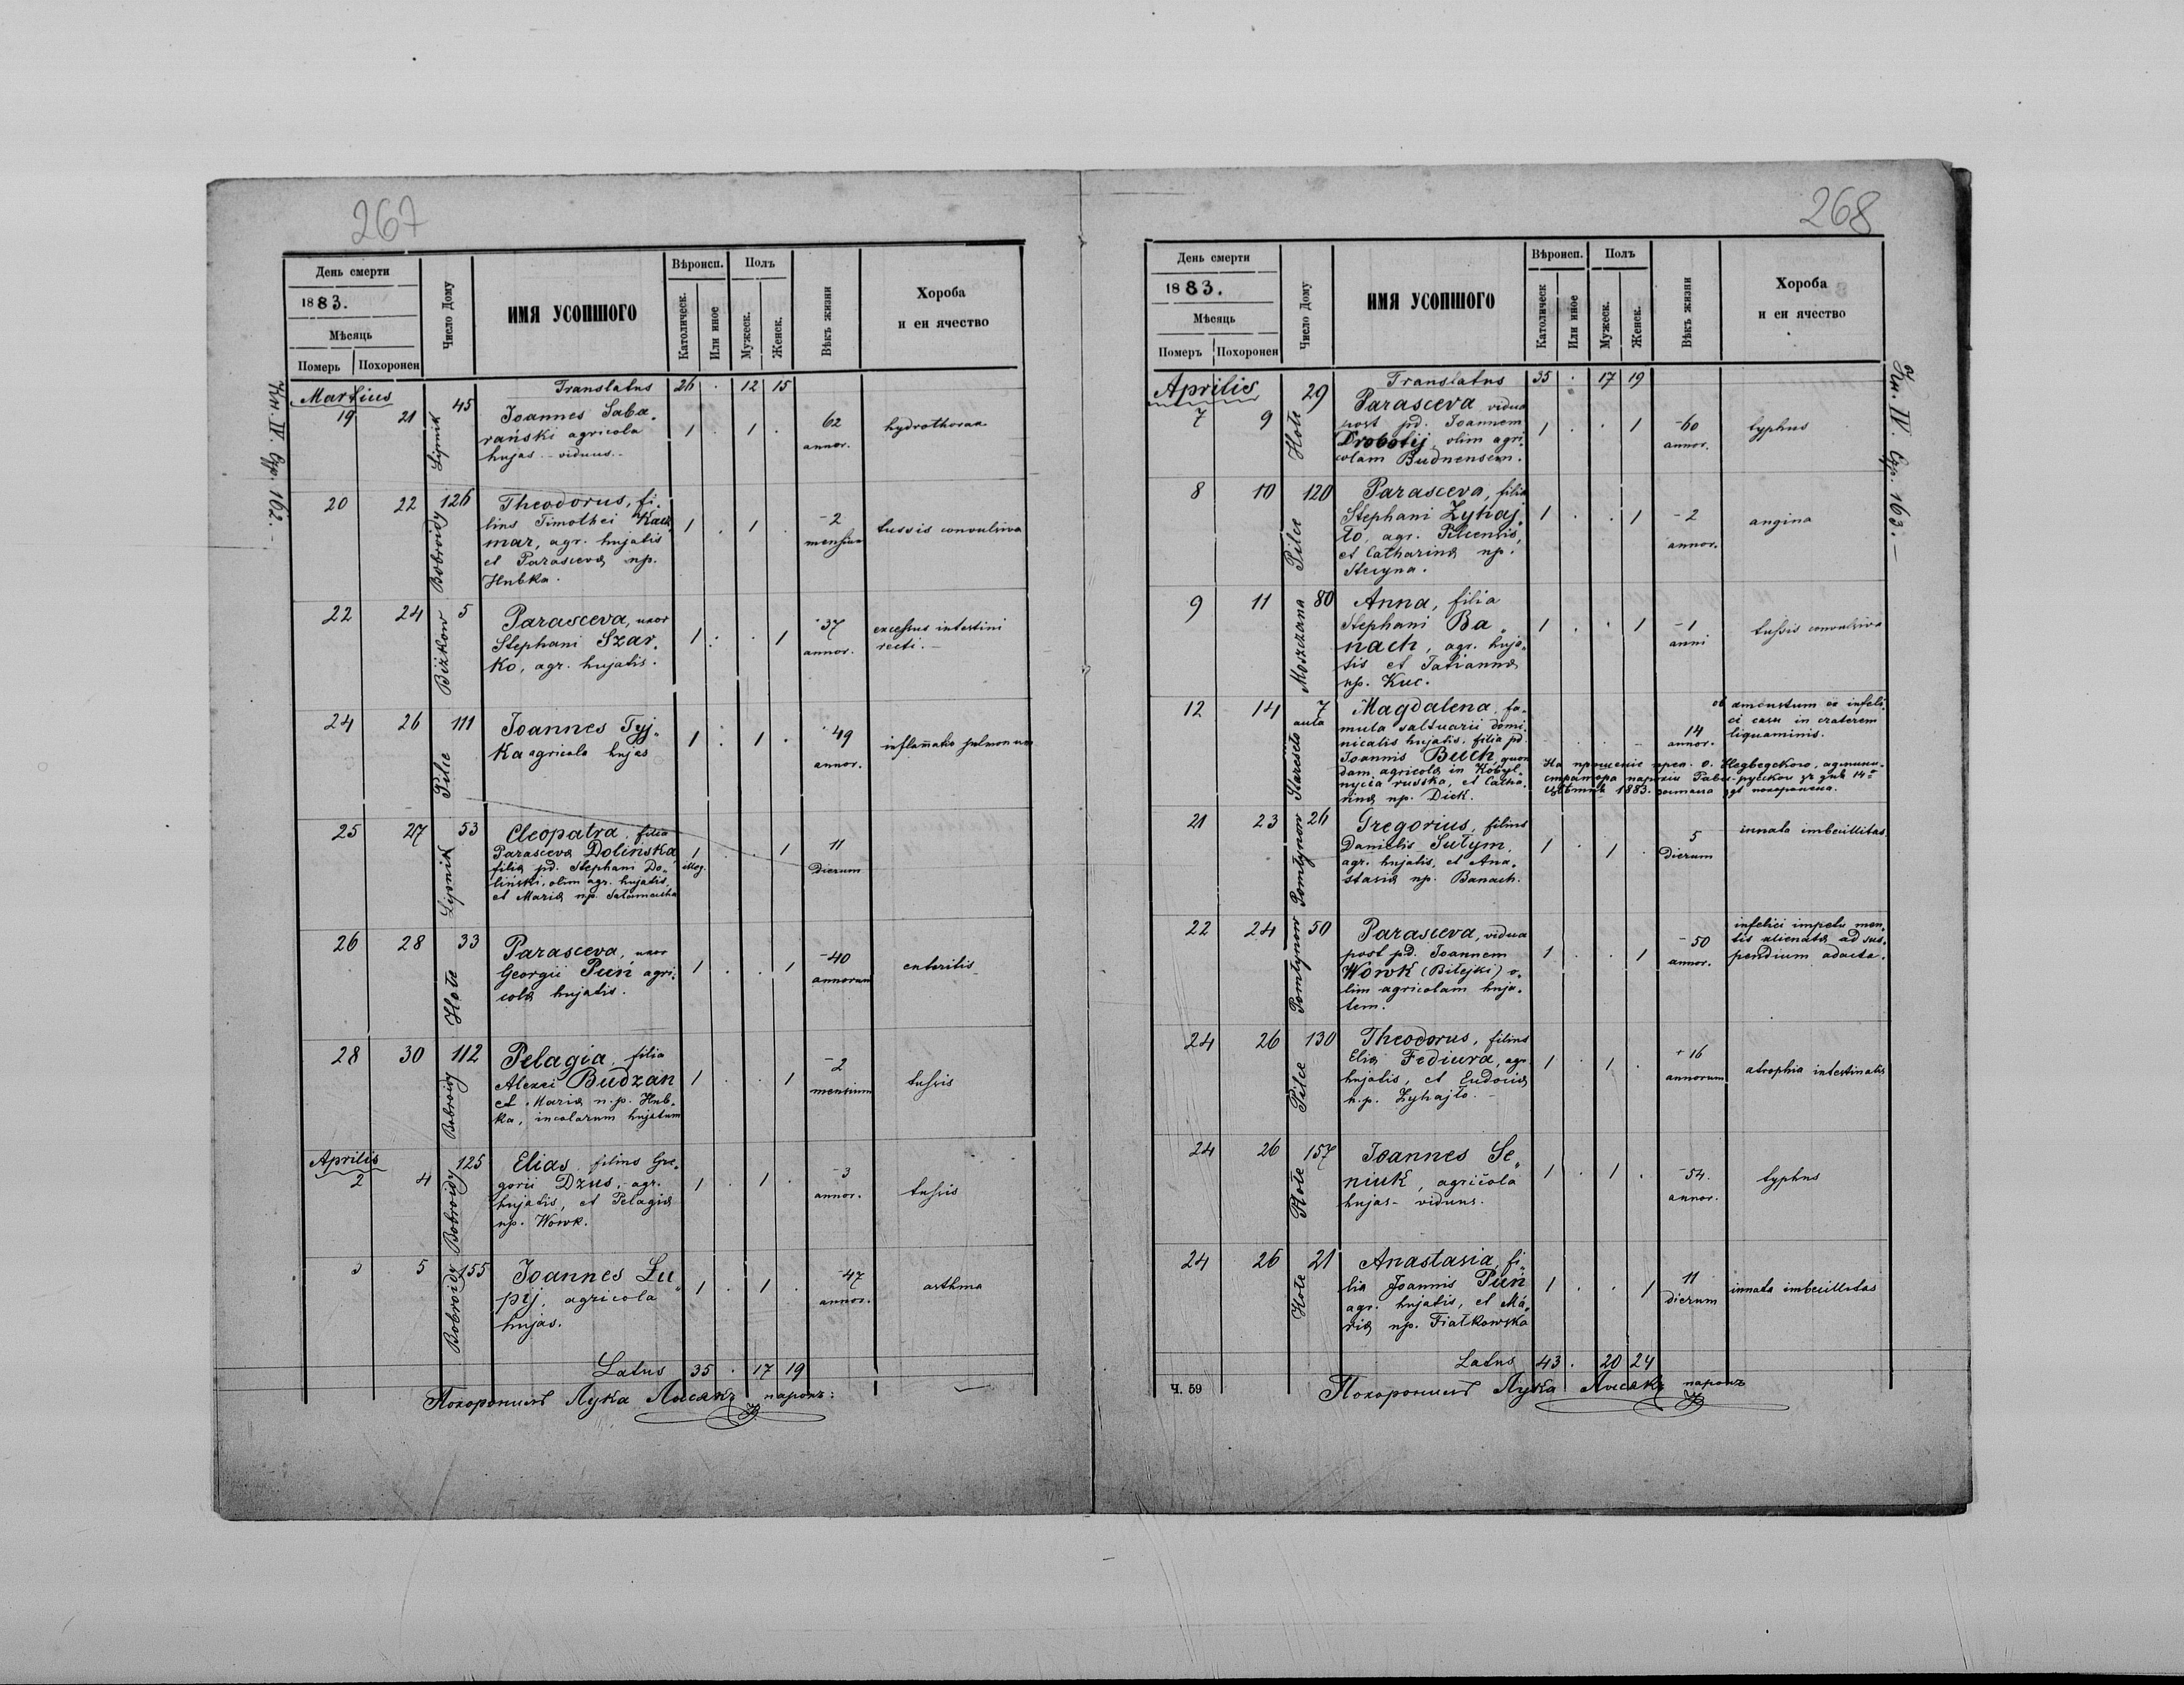 267
День смерти
1883.
Мѣсяць
Померъ Похоронен
Число Дому
ИМЯ УСОПШОГО
Вѣроисп.
Католическ.
Или иное
Полъ
Мужеск.
Женск.
Вѣкъ жизни
Хороба
и еи ячество
Кн. IV. Стр. 162.-
Translatus 26 . 12 15
Martius
19 21 45 Lipnik
Joannes Saba„
rański agricola
hujas - viduus.-
1 . 1 .
62
annor.
hydrothorax
20 22 126 Bobroidy
Theodorus, fi„
lius Timothei Kacz„
mar, agr. hujatis
et Parasceva np.
Hubka.
1 . 1 .
2
mensium
tussis convulsiva
22 24 5 Biżkow
Parasceva, uxor
Stephani Szar„
Ko, agr. hujatis.
1 . . 1
37
annor.
excessus intestini
recti.-
24 26 111 Pilce
Joannes Tyj„
Ka agricola hujas
1 . 1 .
49
annor.
inflam̄atio pulmonum
25 27 53 Lipnik
Cleopatra, filia
Parasceva Dolińska,
filia pd. Stephani Do„
liński, olim agr. hujatis,
et Maria np.
1 . . 1
illeg.
11
Dierum
26 28 33 Hołe
Parasceva, uxor
Georgii Puń agri„
cola hujatis.
1 . . 1
40
annorum
enteritis
28 30 112 Bobroidy
Pelagia, filia
Alexei Budzan
et Maria n.p. Hub„
ka, incolarum hujatum
1 . . 1
2
mensium
tussis
Aprilis
2 4 125 Bobroidy
Elias, filius Gre„
gorii Dzus, agr.
hujatis, et Pelagia
np. Wowk.
1 . 1 .
3
annor.
tussis
3 5 155 Bobroidy
Joannes Lu„
pij, agricola
hujas.
1 . 1 .
47
annor.
asthma
Latus 35 . 17 19
Похоронилъ Лука Лисакъ парохъ:
268
День смерти
1883.
Мѣсяць
Померъ Похоронен
Число Дому
ИМЯ УСОПШОГО
Вѣроисп.
Католическ
Или иное
Полъ
Мужеск.
Женск.
Вѣкъ жизни
Хороба
и еи ячество
Кн. IV. Стр. 163.-
Translatus 35 . 17 19
Aprilis
7 9 29 Hołe
Parasceva vidua
post pd. Joannem
Drobotij, olim agri„
colam Budnensem.
1 . . 1
60
annor.
typhus
8 10 120 Pilce
Parasceva, filia
Stephani Zyhaj„
ło, agr. Pilcensis,
et Catharina np.
Stecyna.
1 . . 1
2
annor.
angina
9 11 80 Moszczana
Anna, filia
Stephani Ba„
nach, agr. huja„
tis et Tatianna
np. Kuc.
1 . . 1
1
anni
tussis convulsiva
12 14 7 aula Staresioło
Magdalena, fa„
mula saltuarii domi„
nicalis hujatis, filia pd.
Joannis Buch, quon„
dam agricola in Kobył„
nycia russka, et Catha„
rina np. Dick.
14
annor.
ob amoustum ex infeli„
ci casu in craterem
liquaminis.
На прошеніе прев. о. Недведского, админи„
стратора парохіи Рави-русскои зъ дня 14
цвѣтня 1883. похоронена.
21 23 26 Pomłynow
Gregorius, filius
Danielis Sułym,
agr. hujatis, et Ana„
stasia np. Banach.
1 . 1 .
5
Dierum
innata imbecillitas
22 24 50 Pomłynow
Parasceva, vidua
post pd. Joannem
Wowk (Biłejki) o„
lim agricolam huja„
tem.
1 . . 1
50
annor.
infelici impetu men„
tis alienata ad sus„
pendium adacta.
24 26 130 Pilce
Theodorus, filius
Elia Fediura, agr.
hujatis, et Eudocia
n.p. Zyhajło.-
1 . 1 .
16
annorum
atrophia intestinalis
24 26 157 Hołe
Joannes Se„
niuk, agricola
hujas - viduus.
1 . 1 .
54.
annor.
typhus
24 26 21 Hołe
Anastasia, fi„
lia Joannis Puń
agr. hujatis, et Ma„
ria np. Fiałkowska
1 . . 1
11
dierum
innata imbecillitas
Latus 43 . 20 24
Ч. 59
Похоронилъ Лука Лисакъ парохъ